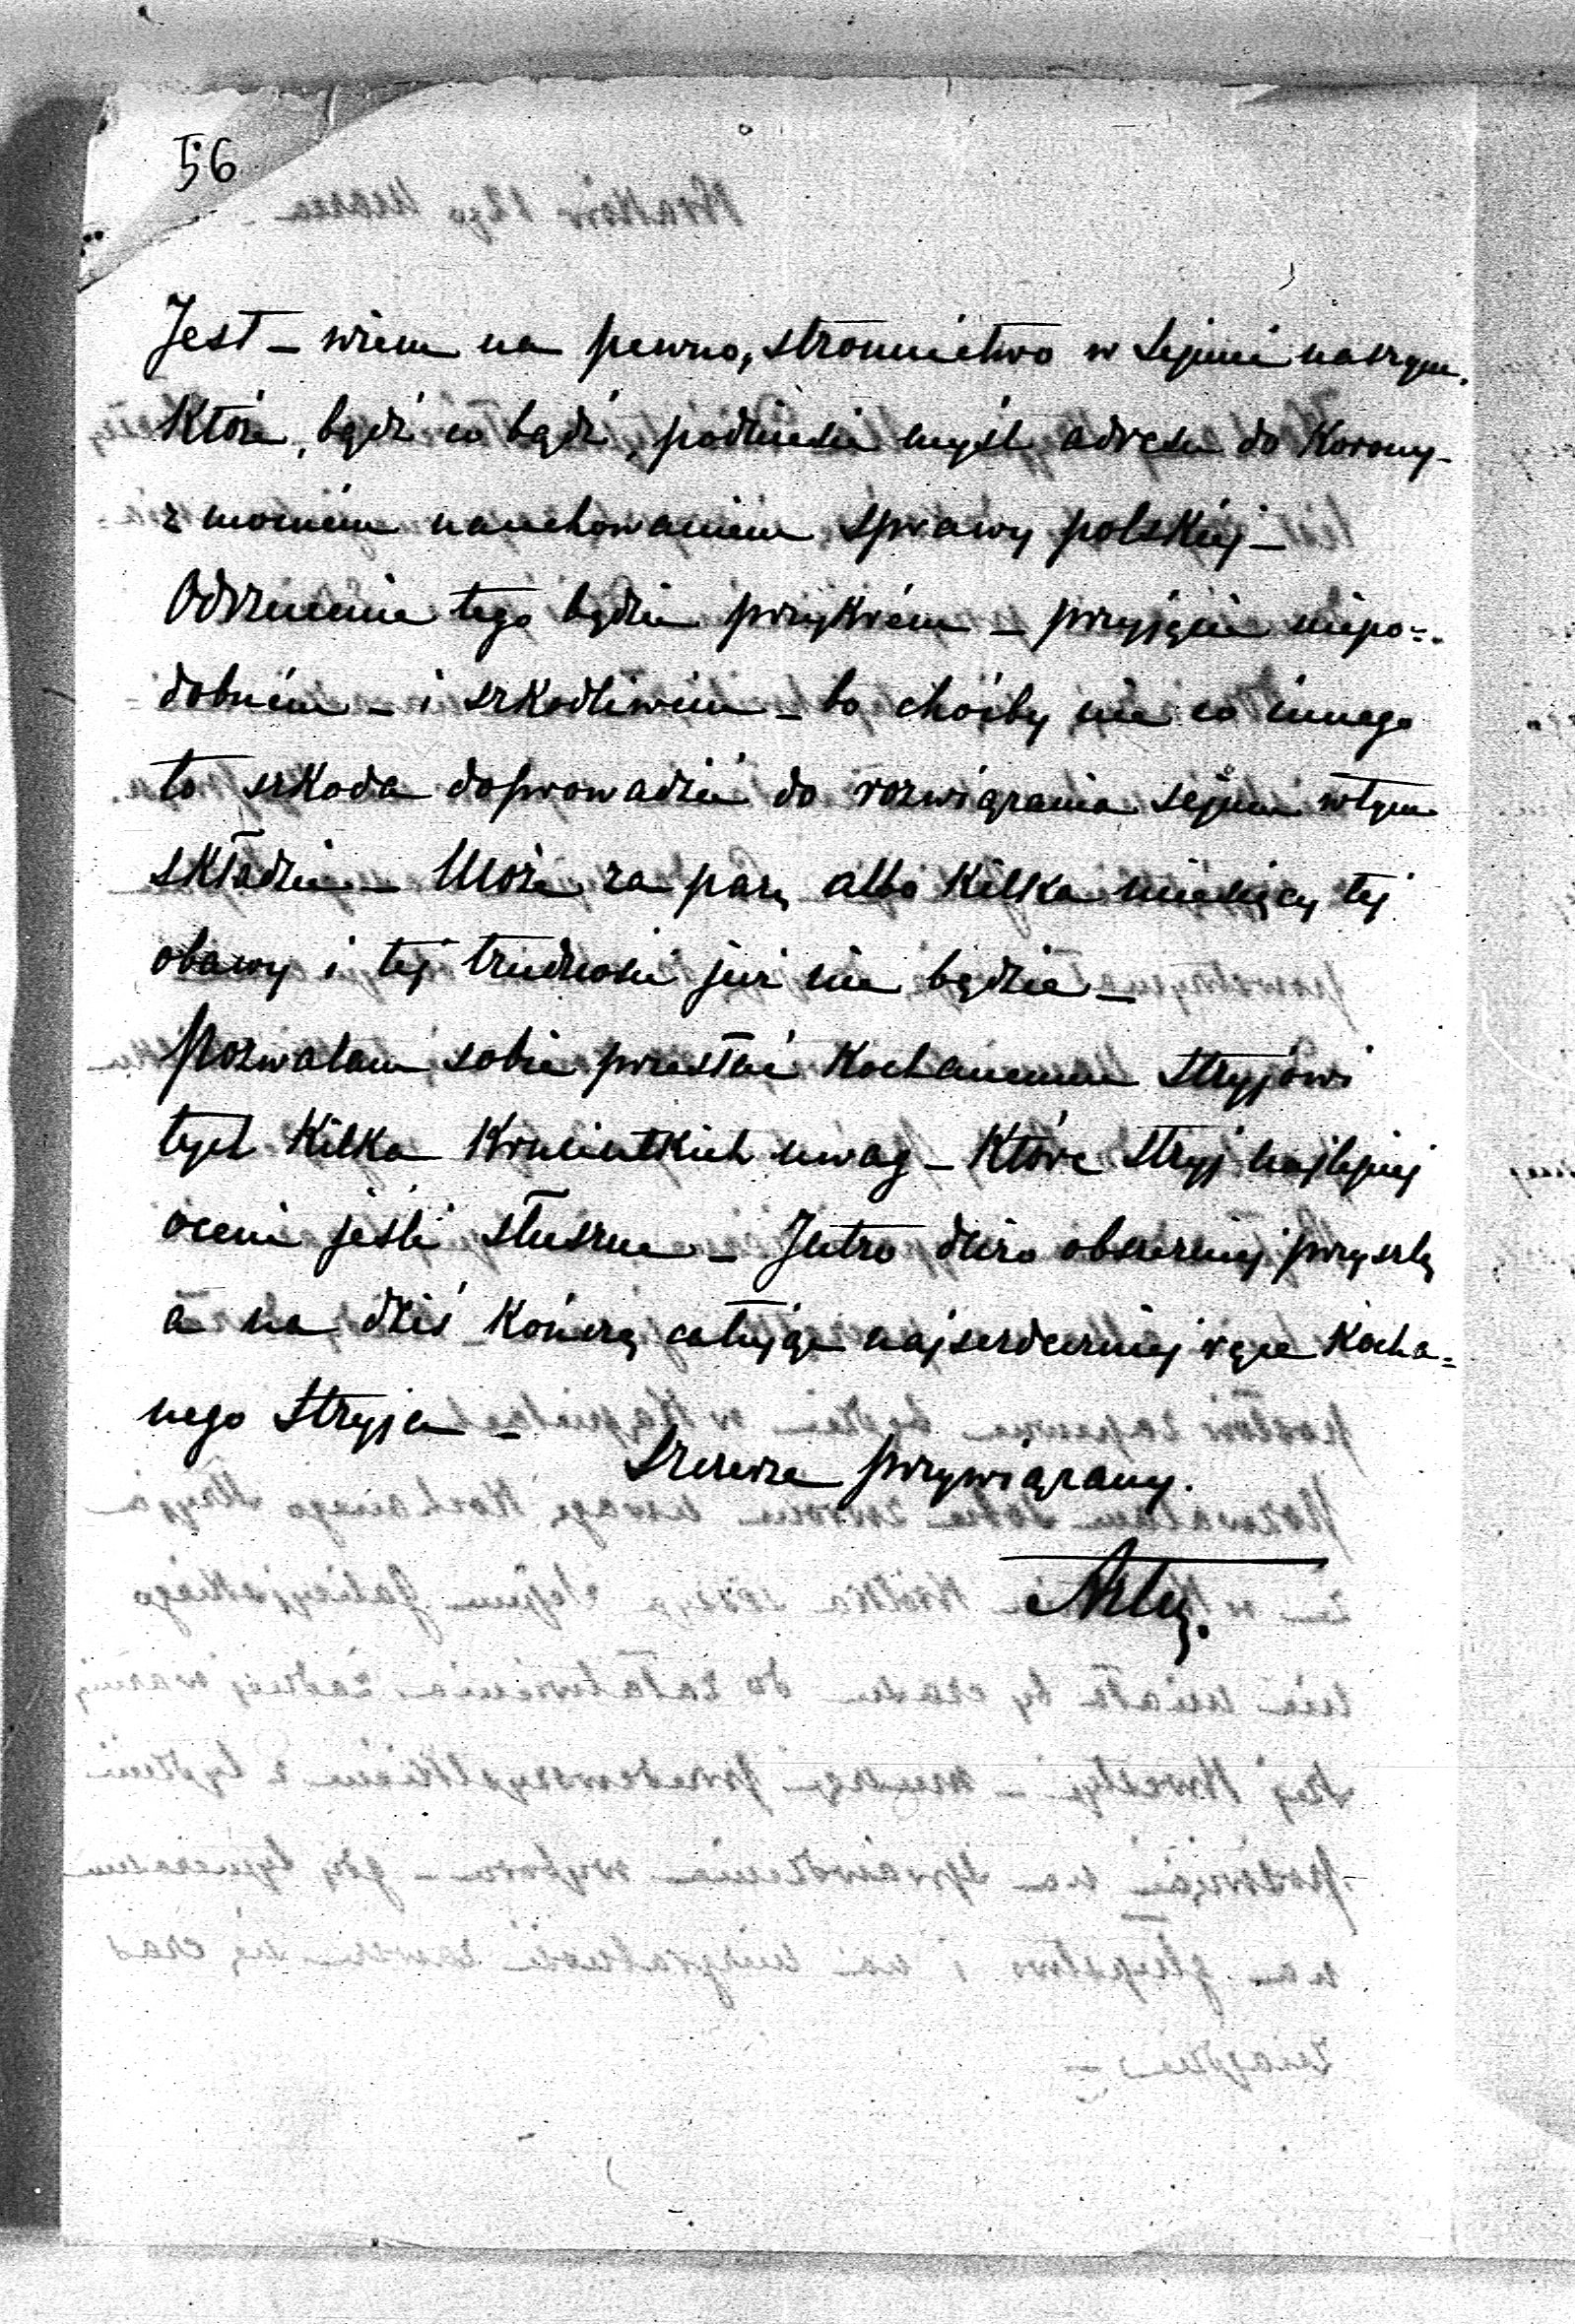 56
Jest – wiem na pewno, stronnictwo w Sejmie naszym,
które, bądź co bądź, podniesie myśl adresu do Korony –
z mocném nacechowaniem sprawy polskiéj –
Odrzucenie tego będzie przykrém – przyjęcie niepo=
dobném – i szkodliwém – bo choćby nie co innego
to szkoda doprowadzić do rozwiązania sejmu w tym
składzie – Może za parę albo kilka miesięcy tej
obawy i tej trudności już nie będzie –
Pozwalam sobie przesłać Kochanemu Stryjowi
tych kilka króciutkich uwag – które Stryj najlepiej
oceni jeśli słuszne – Jutro obszerniej przyszlę
a na dziś kończę całując najserdeczniej ręce Kocha=
nego Stryja –
Szczerze przywiązany.